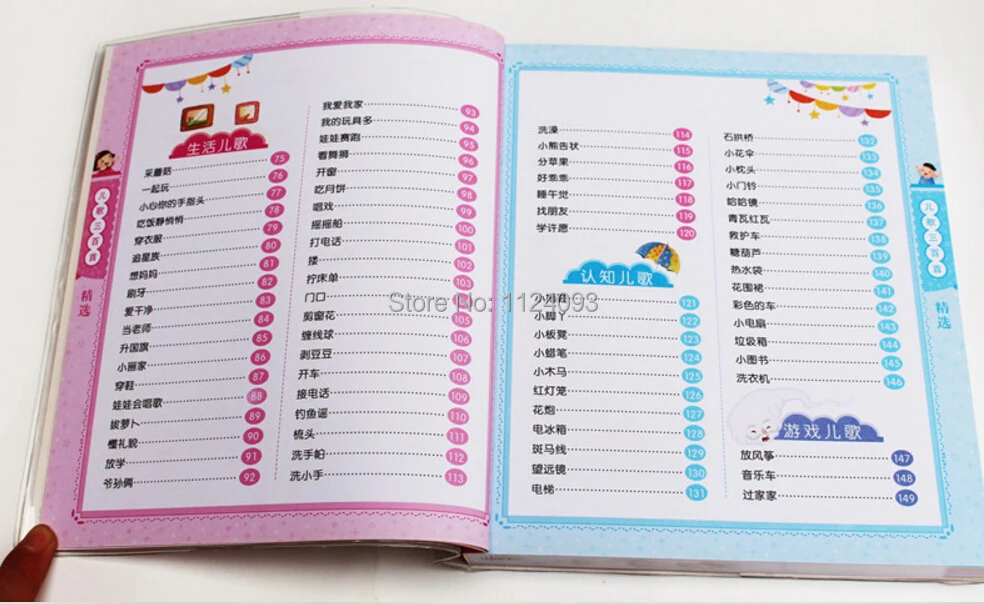 儿歌三百首
精选
生活儿歌
采蘑菇 75
一起玩 76
小心你的手指头 77
吃饭静悄悄 78
穿衣服 79
追星族 80
想妈妈 81
刷牙 82
爱干净 83
当老师 84
升国旗 85
小丽家 86
穿鞋 87
娃娃会唱歌 88
拔萝卜 89
懂礼貌 90
放学 91
爷孙俩 92
我爱我家 93
我的玩具多 94
娃娃赛跑 95
看舞狮 96
开窗 97
吃月饼 98
唱戏 99
摇摇船 100
打电话 101
搂 102
拧床单 103
门口
剪窗花 105
缠线球 106
剥豆豆 107
开车 108
接电话 109
钓鱼谣 110
梳头 111
洗手帕 112
洗小手 113
洗澡 114
小熊告状 115
分苹果 116
好乖乖 117
睡午觉 118
找朋友 119
学许愿 120
认知儿歌
121
小脚丫 122
小板凳 123
小蜡笔 124
小木马 125
红灯笼 126
花炮 127
电冰箱 128
斑马线 129
望远镜 130
电梯 131
石拱桥 132
小花伞 133
小枕头 134
小门铃 135
哈哈镜 136
青瓦红瓦 137
救护车 138
糖葫芦 139
热水袋 140
花围裙 141
彩色的车 142
小电扇 143
垃圾箱 144
小图书 145
洗衣机 146
游戏儿歌
放风筝 147
音乐车 148
过家家 149
儿歌三百首
精选
Store No: 1124093